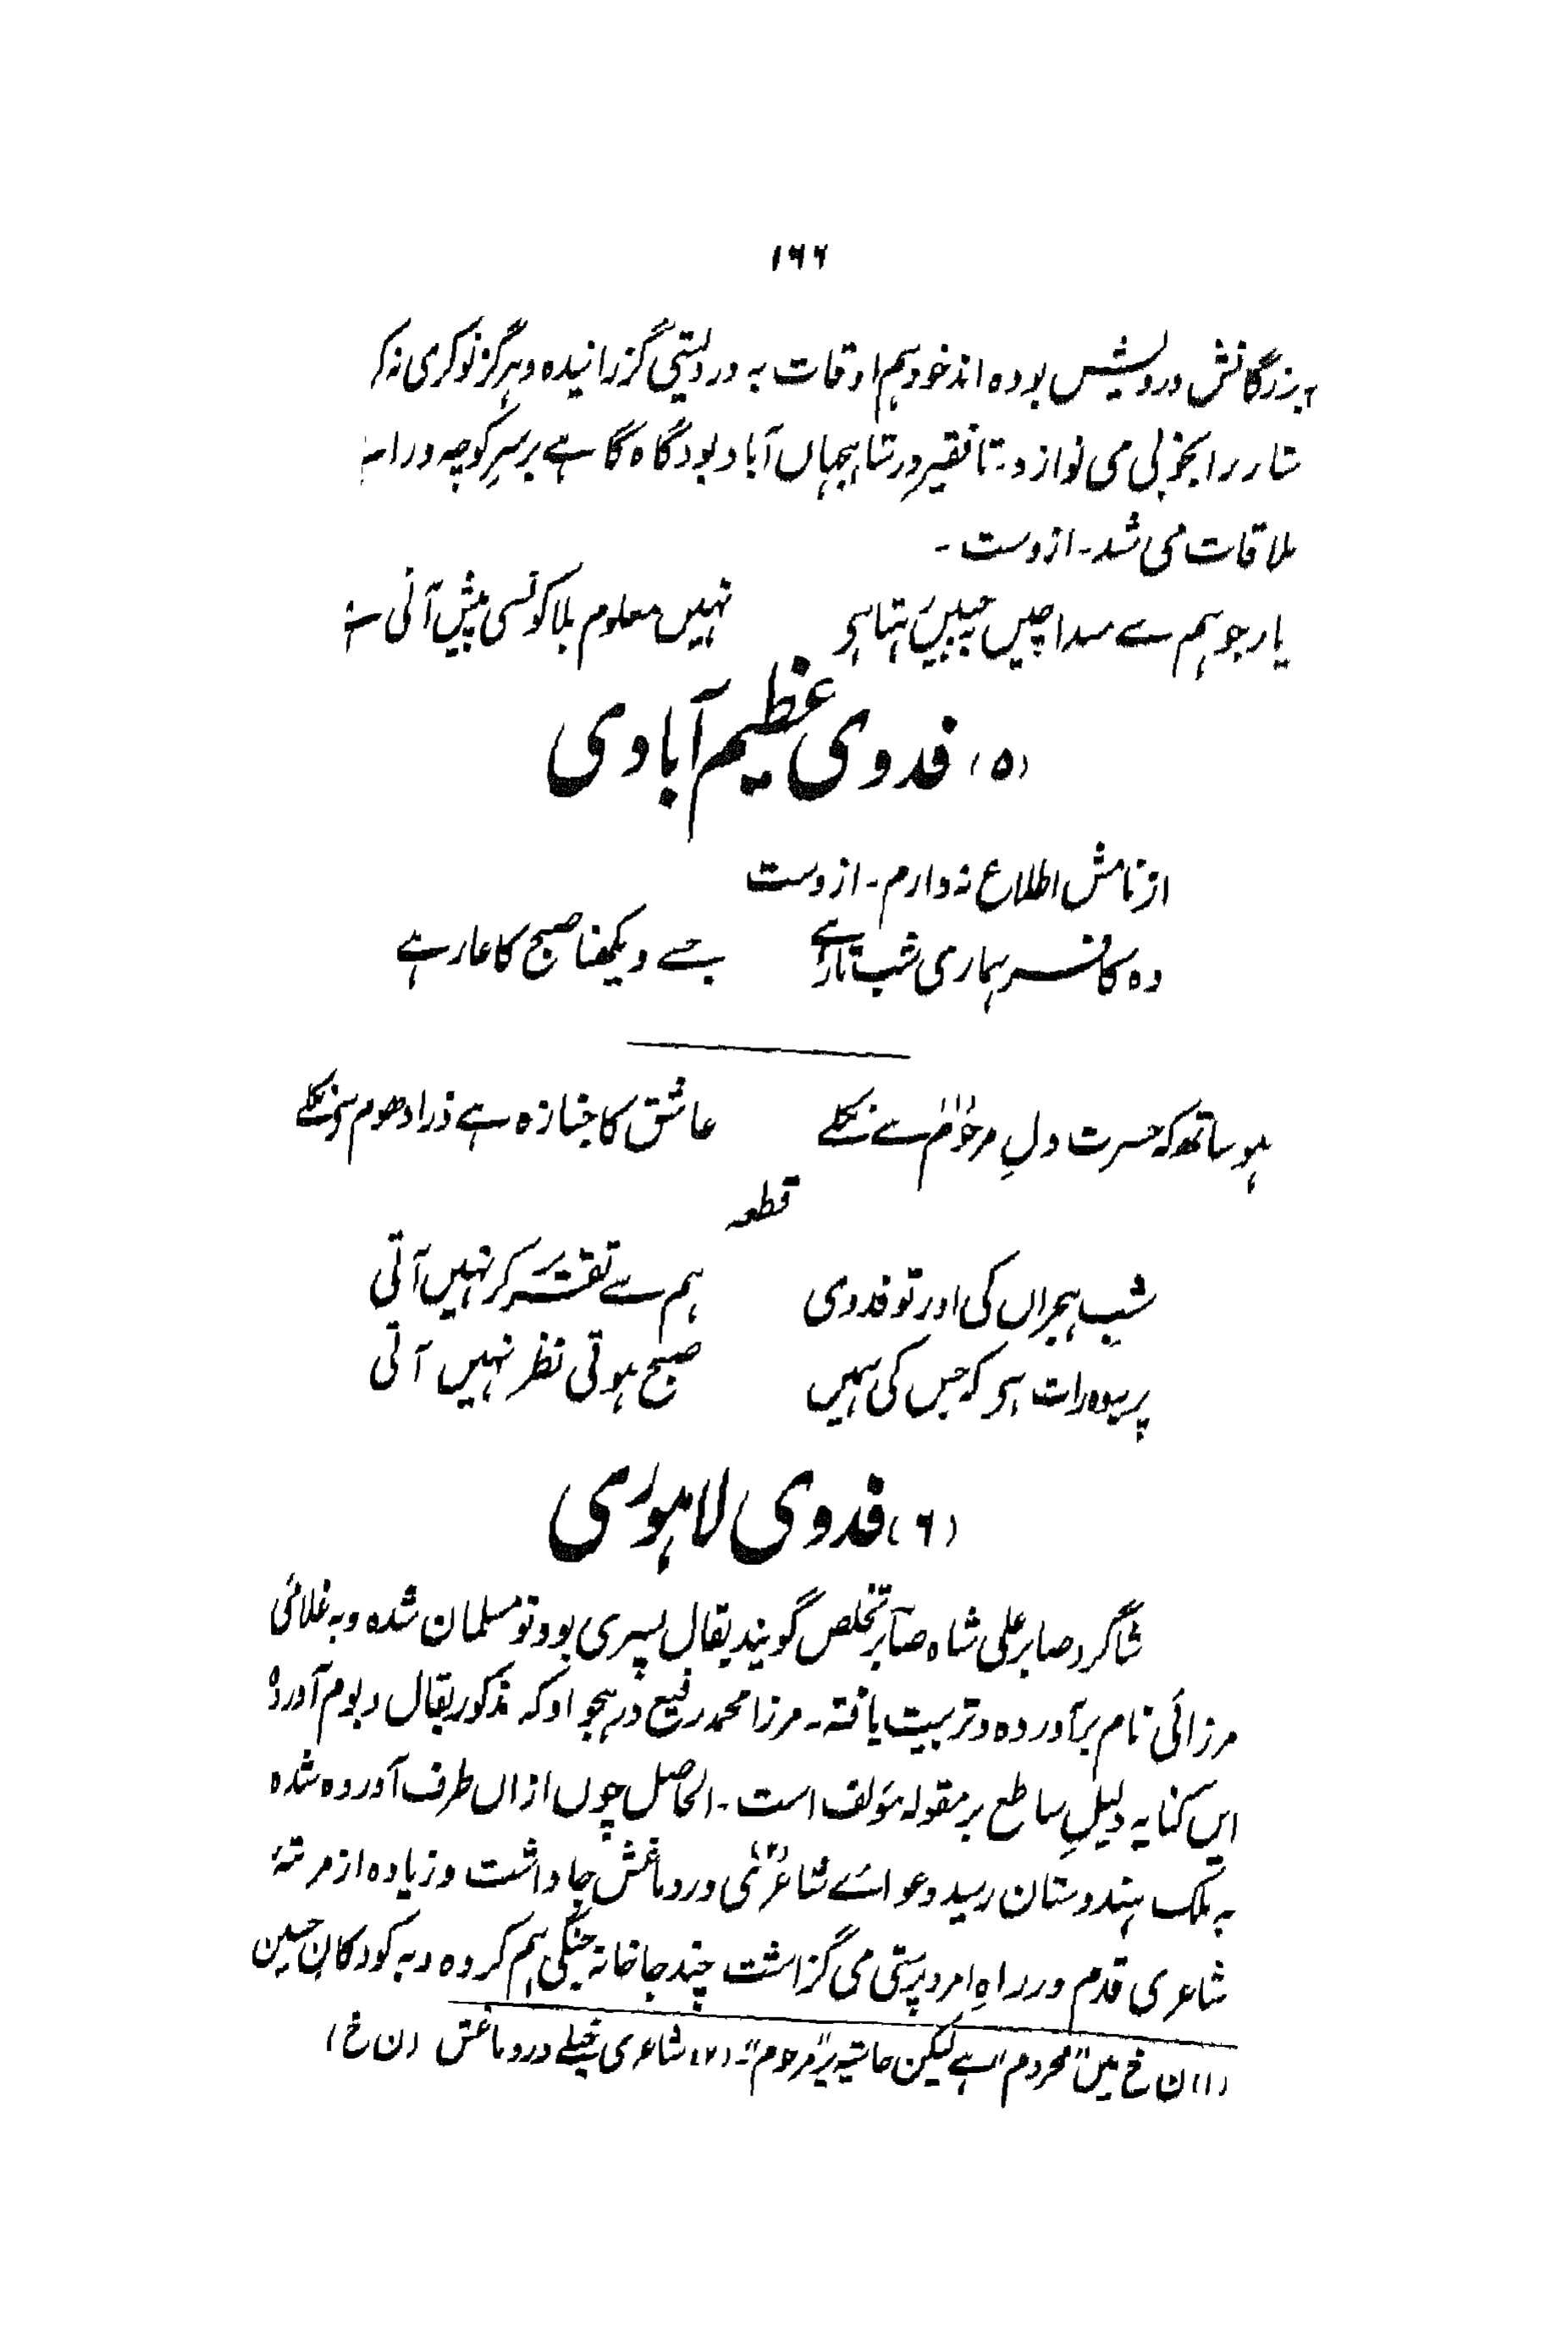 ۱۶۶
بزرگانش درویش بوده اند خود ہم اوقات بہ درویشی گزرانیدہ و ہرگز نوکری نہ کر
ستار را بخوبی می نوازد۔ تا فقیر در شاہجہاں آباد بود گاہ گاہے بر سرِ کوچہ و راہ
ملاقات می شد۔ ازوست۔
یار جو ہم سے سدا چیں بہ جبیں رہتا ہی نہیں معلوم بلا کونسی پیش آئی ہے
(۵) فدوی عظیم آبادی
از نامش اطلاع نہ دارم۔ ازوست
وہ کافر ہماری شب تار ہے جسے دیکھنا صبح کا عار ہے
ہو ساتھ کہ حسرت دلِ مرحوم(۱) سے نکلے عاشق کا جنازہ ہے ذرا دھوم سے نکلے
قطعہ
شبِ ہجراں کی اور تو فدوی ہم سے تقریر کر نہیں آتی
پر یہ وہ رات ہی کہ جس کی ہمیں صبح ہوتی نظر نہیں آتی
(۶) فدوی لاہوری
شاگرد صابر علی شاہ صابر تخلص گویند بقال پسری بود نو مسلمان شدہ و بہ غلامئی
مرزائی نام برآوردہ و تربیت یافتہ۔ مرزا محمد رفیع در ہجو او کہ مذکور بقال و بوم آوردہ
ایں کنایہ دلیلِ ساطع بر مقولہ مؤلف است۔ الحاصل چوں ازاں طرف آوردہ شدہ
بہ ملک ہندوستان رسید دعواۓ شاعری(۲) در دماغش جا داشت و زیادہ از مرتبۂ
شاعری قدم در راہِ امرد پرستی می گزاشت چند جا خانہ جنگی ہم کردہ و بہ کودکانِ حسین
(۱) ن خ میں "محروم" ہے لیکن حاشیہ پر "مرحوم"۔ (۲) شاعری خیلے در دماغش (ن خ)